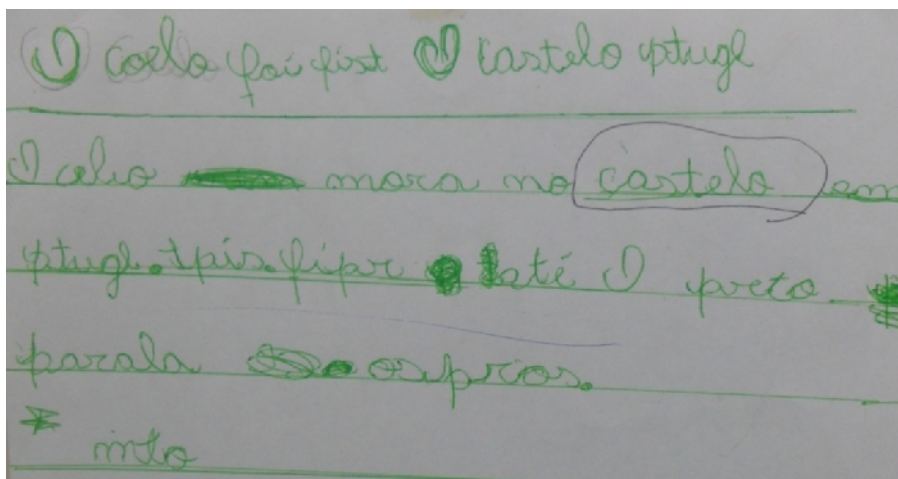 O coelo foi fist O castelo ptugl
O celio mora no castelo em
ptugl. tpis. fipr até O preto
parala osipros.
* into